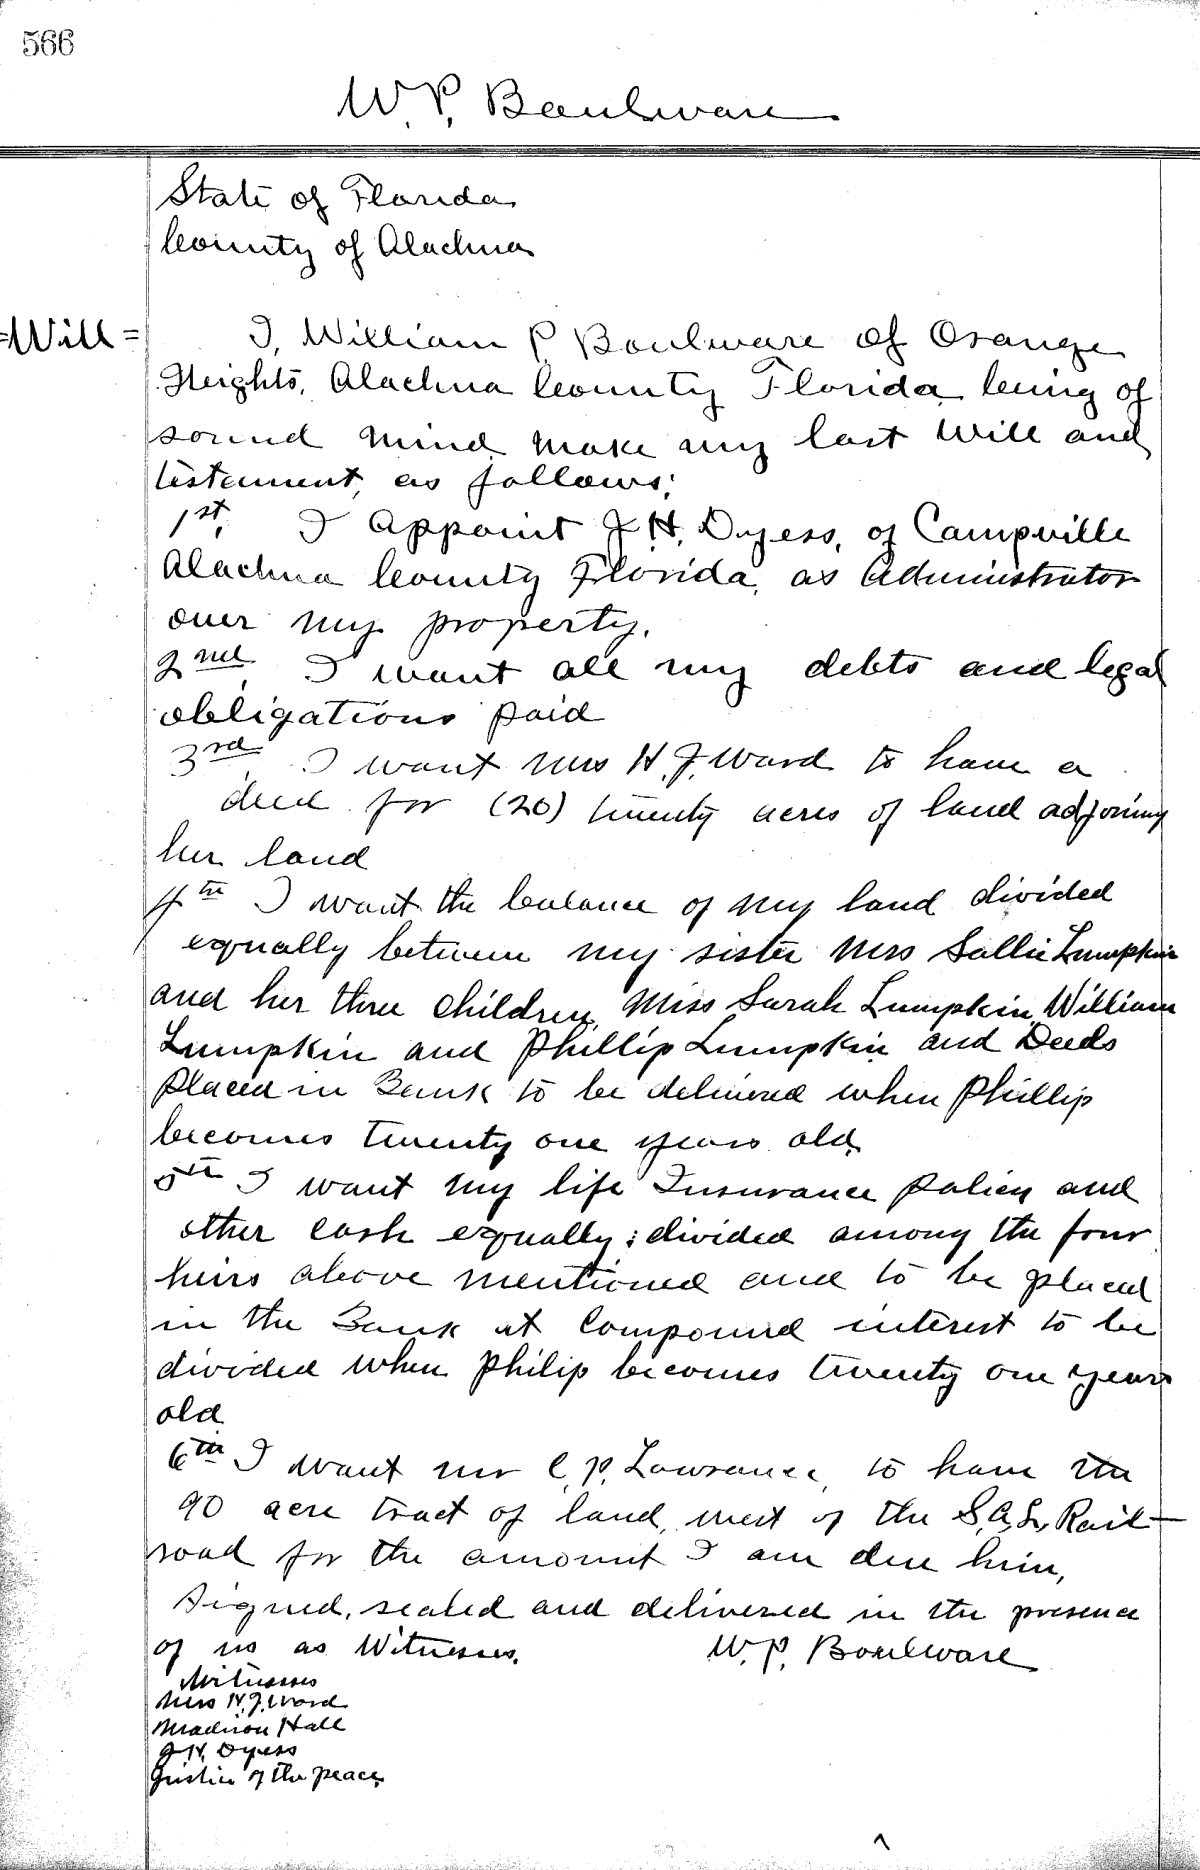 566
W. P. Boulware
State of Florida
County of Alachua
=Will=
I, William P. Boulware of Orange
Heights, Alachua County Florida being of
sound mind make my last Will and
testament, as follows;
1st, I Appoint J. H. Dyess, of Campville
Alachua County Florida, as Administrator
over my property.
2nd I want all my debts and legal
obligations paid
3rd I want Mrs H. J. Ward to have a
deed for (20) twenty acres of land adjoining
her land
4th I want the balance of my land divided
equally between my sister Mrs Sallie Lumpkin
and her three children, Miss Sarah Lumpkin, William
Lumpkin and Phillip Lumpkin and Deeds
placed in Bank to be delivered when Phillip
becomes twenty one years old.
5th I want my life Insurance policy and
other cash equally; divided among the four
heirs above mentioned and to be placed
in the Bank at Compound interest to be
divided when Philip becomes twenty one years
old
6th I want Mr C. P. Lowrance, to have the
90 acre tract of land, west of the S. A. L. Rail-
road for the amount I am due him,
Signed, sealed and delivered in the presence
of us as Witnesses. W. P. Boulware
Witnesses
Mrs H. J. Ward
Madison Hall
J. H. Dyess
Justice of the peace,